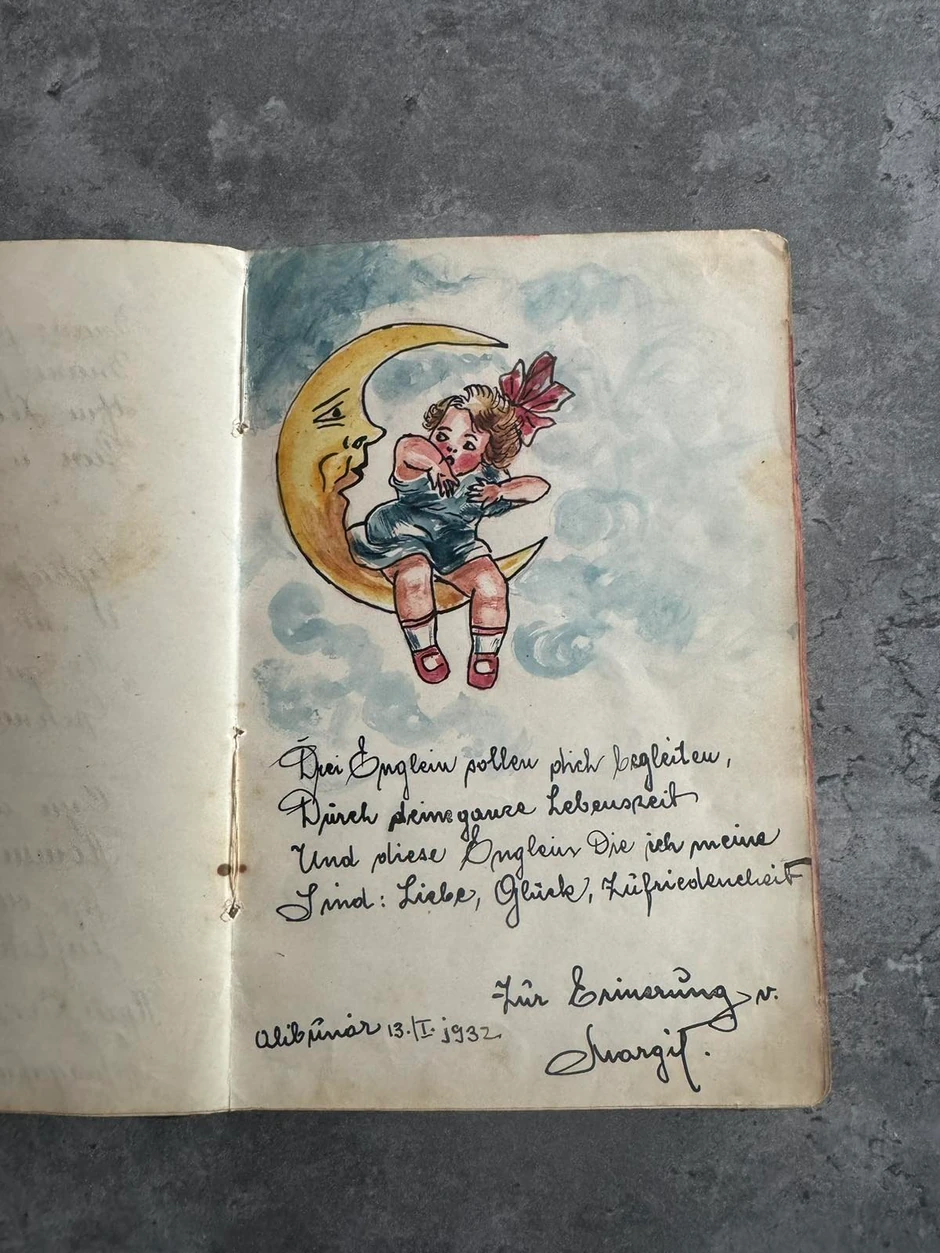 Drei Englein sollen dich begleiten,
Durch deine ganze Lebenszeit
Und diese Englein Die ich meine
Sind: Liebe, Glück, Zufriedenheit
Zur Erinerung v.
Alibunár 13./I. 1932
Margit.